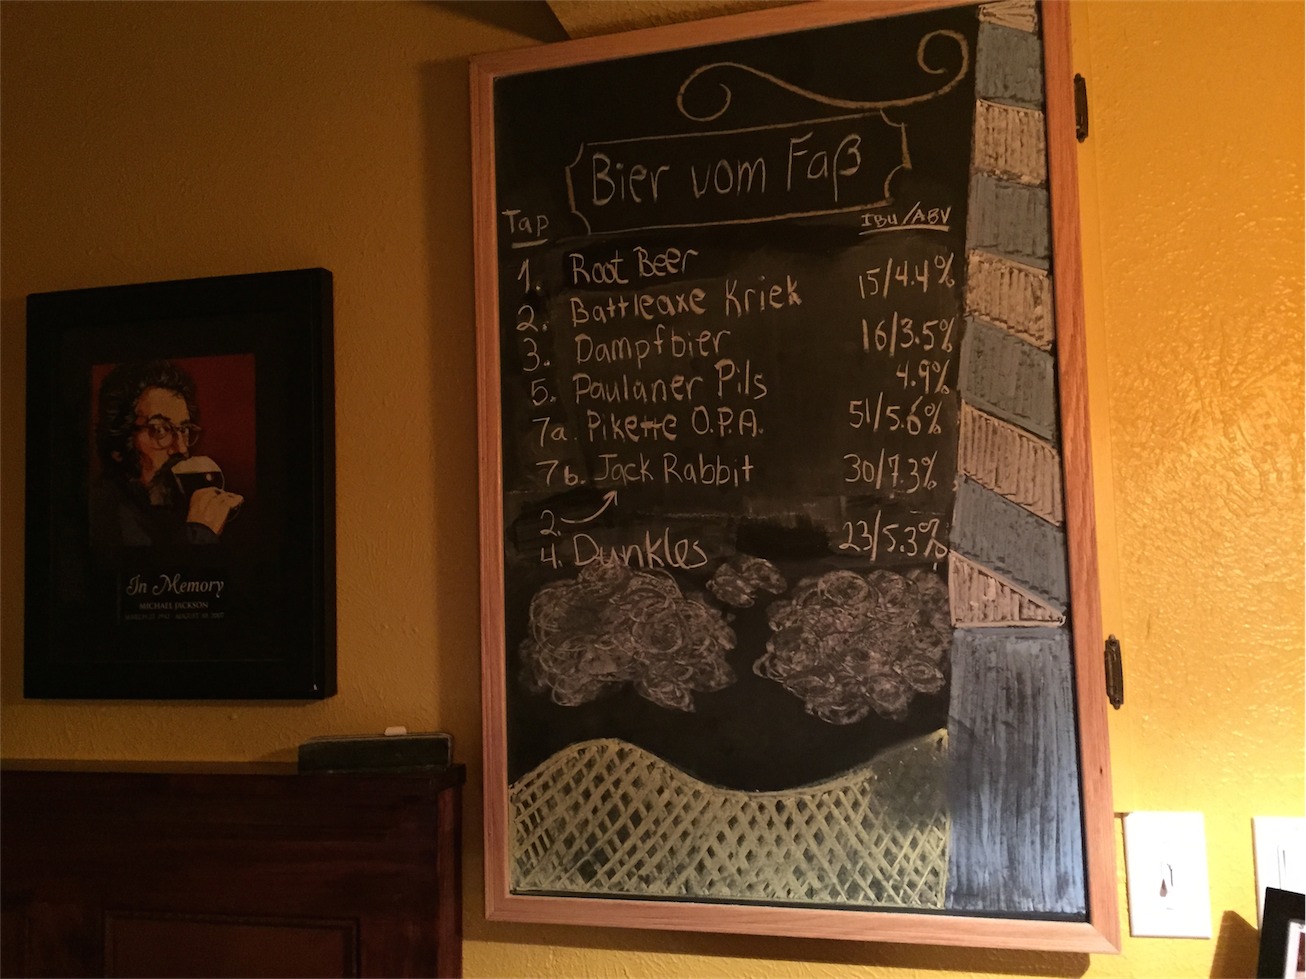 Bier vom Faß
Tap IBU/ABV
1. Root Beer
2. Battleaxe Kriek 15/4.4%
3. Dampfbier 16/3.5%
5. Paulaner Pils 4.9%
7a. Pikette O.P.A. 51/5.6%
7b. Jack Rabbit 30/7.3%
2.
4. Dunkles 23/5.3%
In Memory
MICHAEL JACKSON